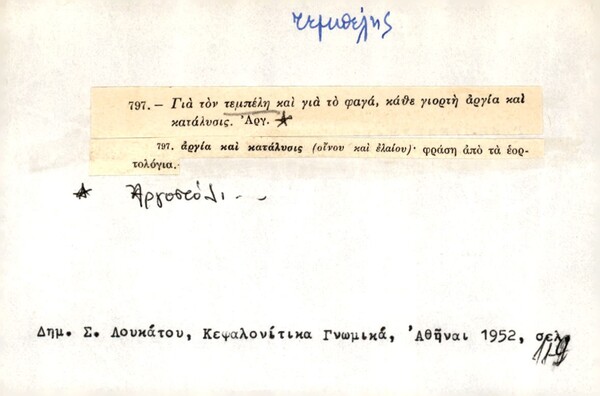 τεμπέλης
797. – Γιὰ τὸν τεμπέλη καὶ γιὰ τὸ φαγά, κάθε γιορτὴ ἀργία καὶ
κατάλυσις. Ἀργ. ★
797. ἀργία καὶ κατάλυσις (οἴνου καὶ ἐλαίου)· φράση ἀπὸ τὰ ἑορ-
τολόγια.
★ Ἀργοστόλι
Δημ. Σ. Λουκάτου, Κεφαλονίτικα Γνωμικά, Ἀθῆναι 1952, σελ.
119